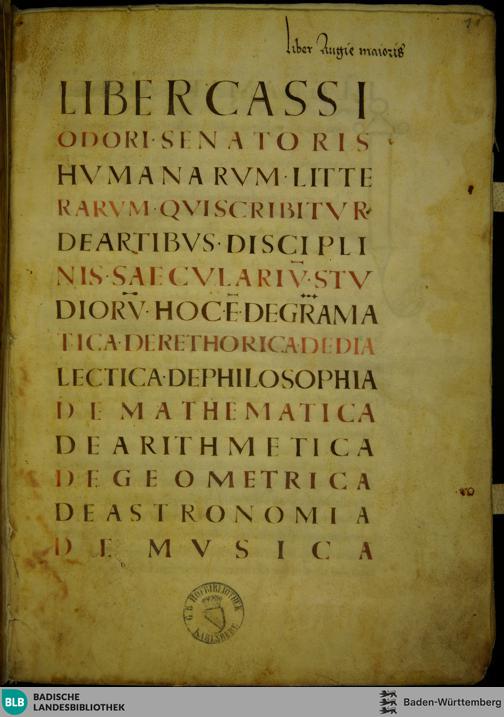 liber Augie maioris
LIBER·CASSI
ODORI·SENATORIS
HVMANARVM·LITTE
RARVM·QVISCRIBITVR·
DEARTIBVS·DISCIPLI
NIS·SAECVLARIV̅·STV
DIORV̅·HOC·Ē·DEGRAMA
TICA·DERETHORICA·DEDIA
LECTICA·DEPHILOSOPHIA
DE MATHEMATICA
DEARITHMETICA
DEGEOMETRICA
DEASTRONOMIA
DE MVSICA
G.B. HOFBIBLIOTHEK
KARLSRUHE
BLB
BADISCHE
LANDESBIBLIOTHEK
Baden-Württemberg